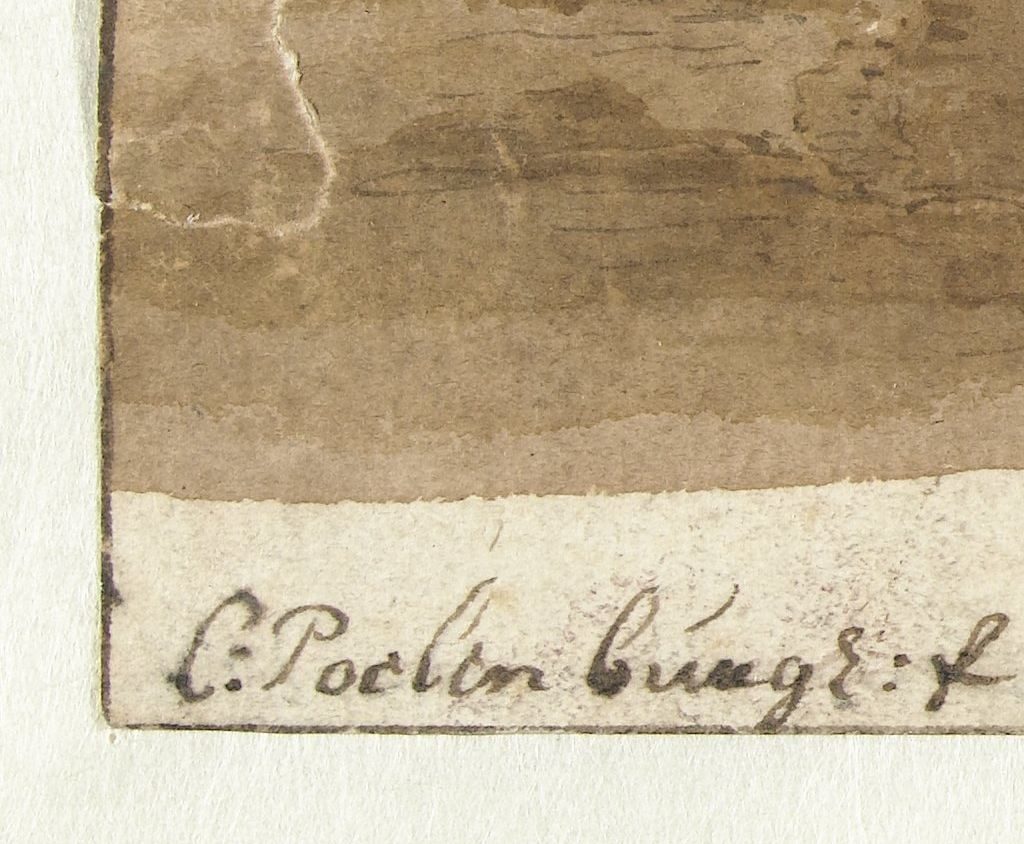 C: Poelenburgh: f